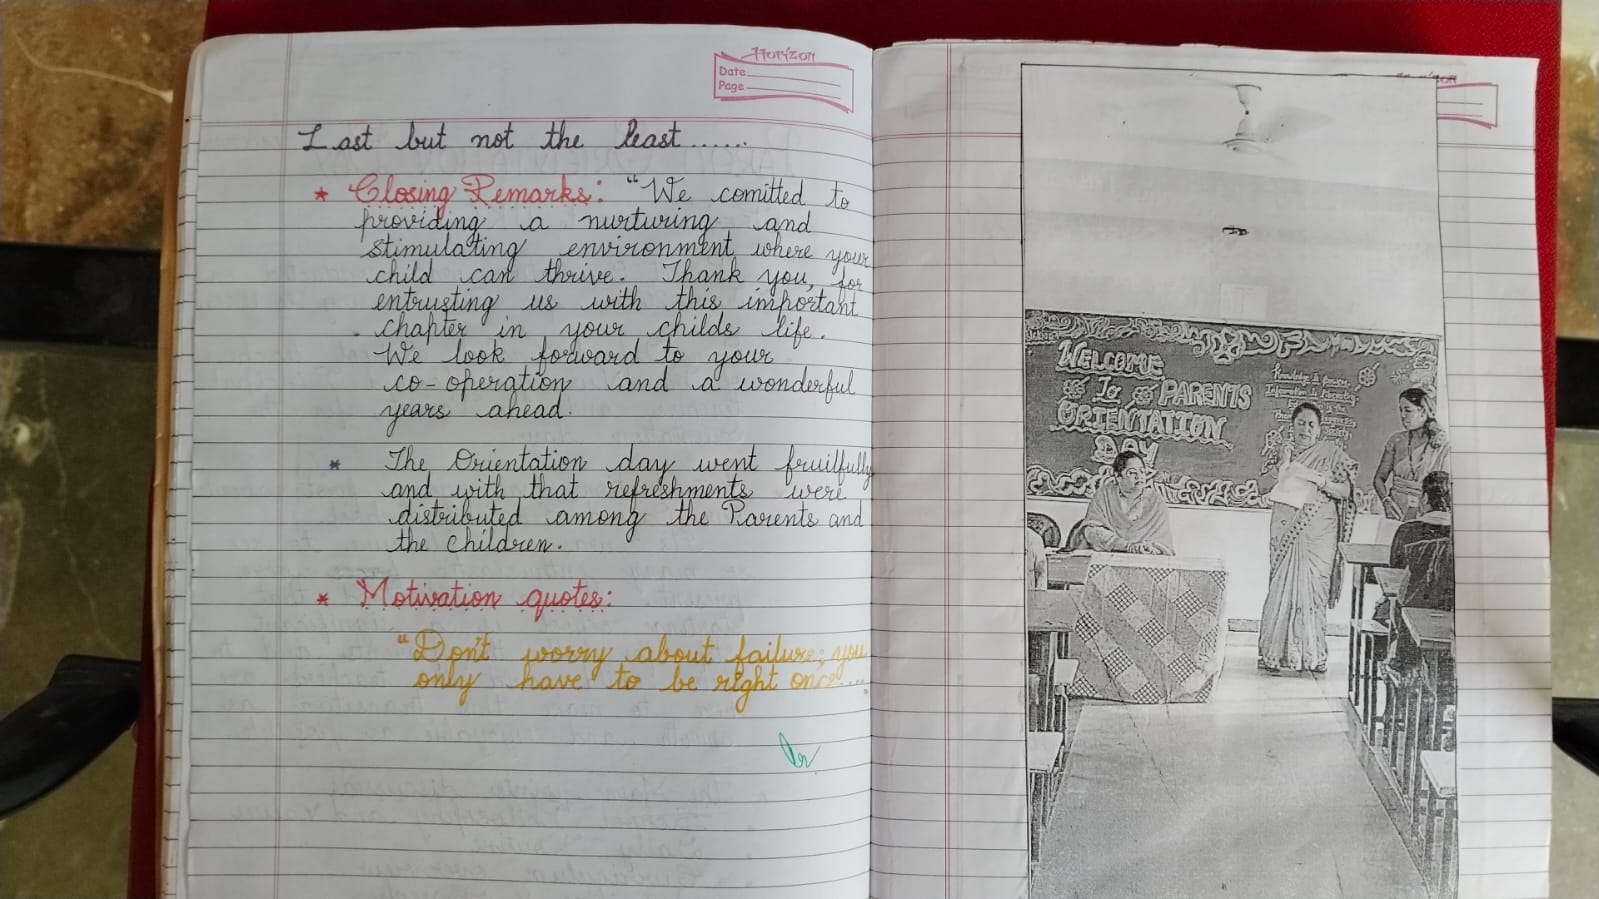 Horizon
Date
Page
Last but not the least......
* Closing Remarks: "We comitted to
providing a nurturing and
stimulating environment where your
child can thrive. Thank you, for
entrusting us with this important
chapter in your childs life.
We look forward to your
co-operation and a wonderful
years ahead.
* The Orientation day went fruilfully
and with that refreshments were
distributed among the Parents and
the children.
* Motivation quotes:
"Don't worry about failure; you
only have to be right once....
WELCOME
To PARENTS
ORIENTATION
DAY